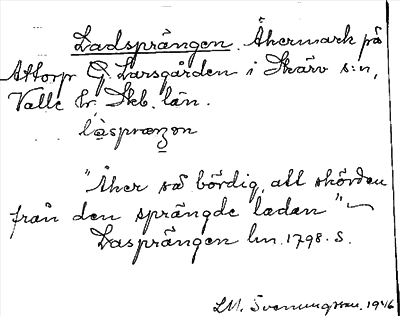 Ladsprängen. Åkermark på
Attorp G. Larsgården i Skärv s:n,
Valle hr. Skb. län.
låspræȥon
"Åker så bördig, att skörden
från den sprängde ladan"
Lasprängen hn. 1798. S.
LM. Svenungsson. 1946